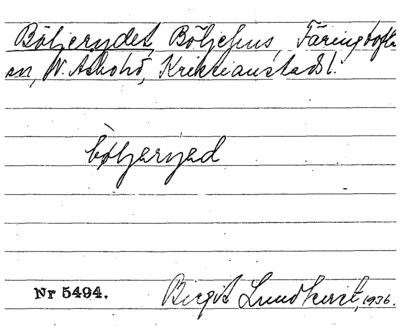 Böljerydet, Böljehus, Färingtofta
sn, N. Åsbohd, Kristianstads l.
bøljaryəd
Nr 5494. Birgit Lundkvist, 1936.